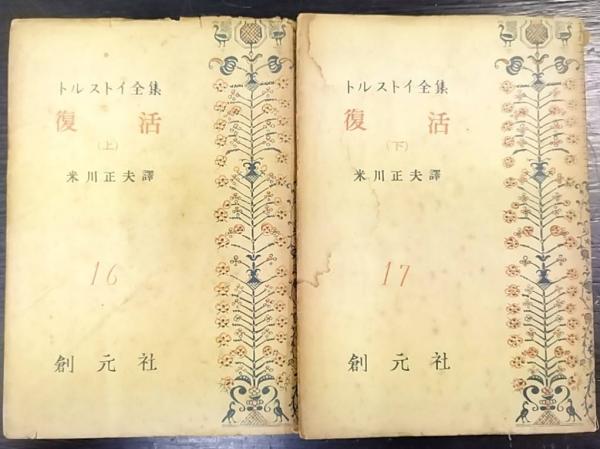 トルストイ全集
復活
(上)
米川正夫譯
16
創元社
トルストイ全集
復活
(下)
米川正夫譯
17
創元社